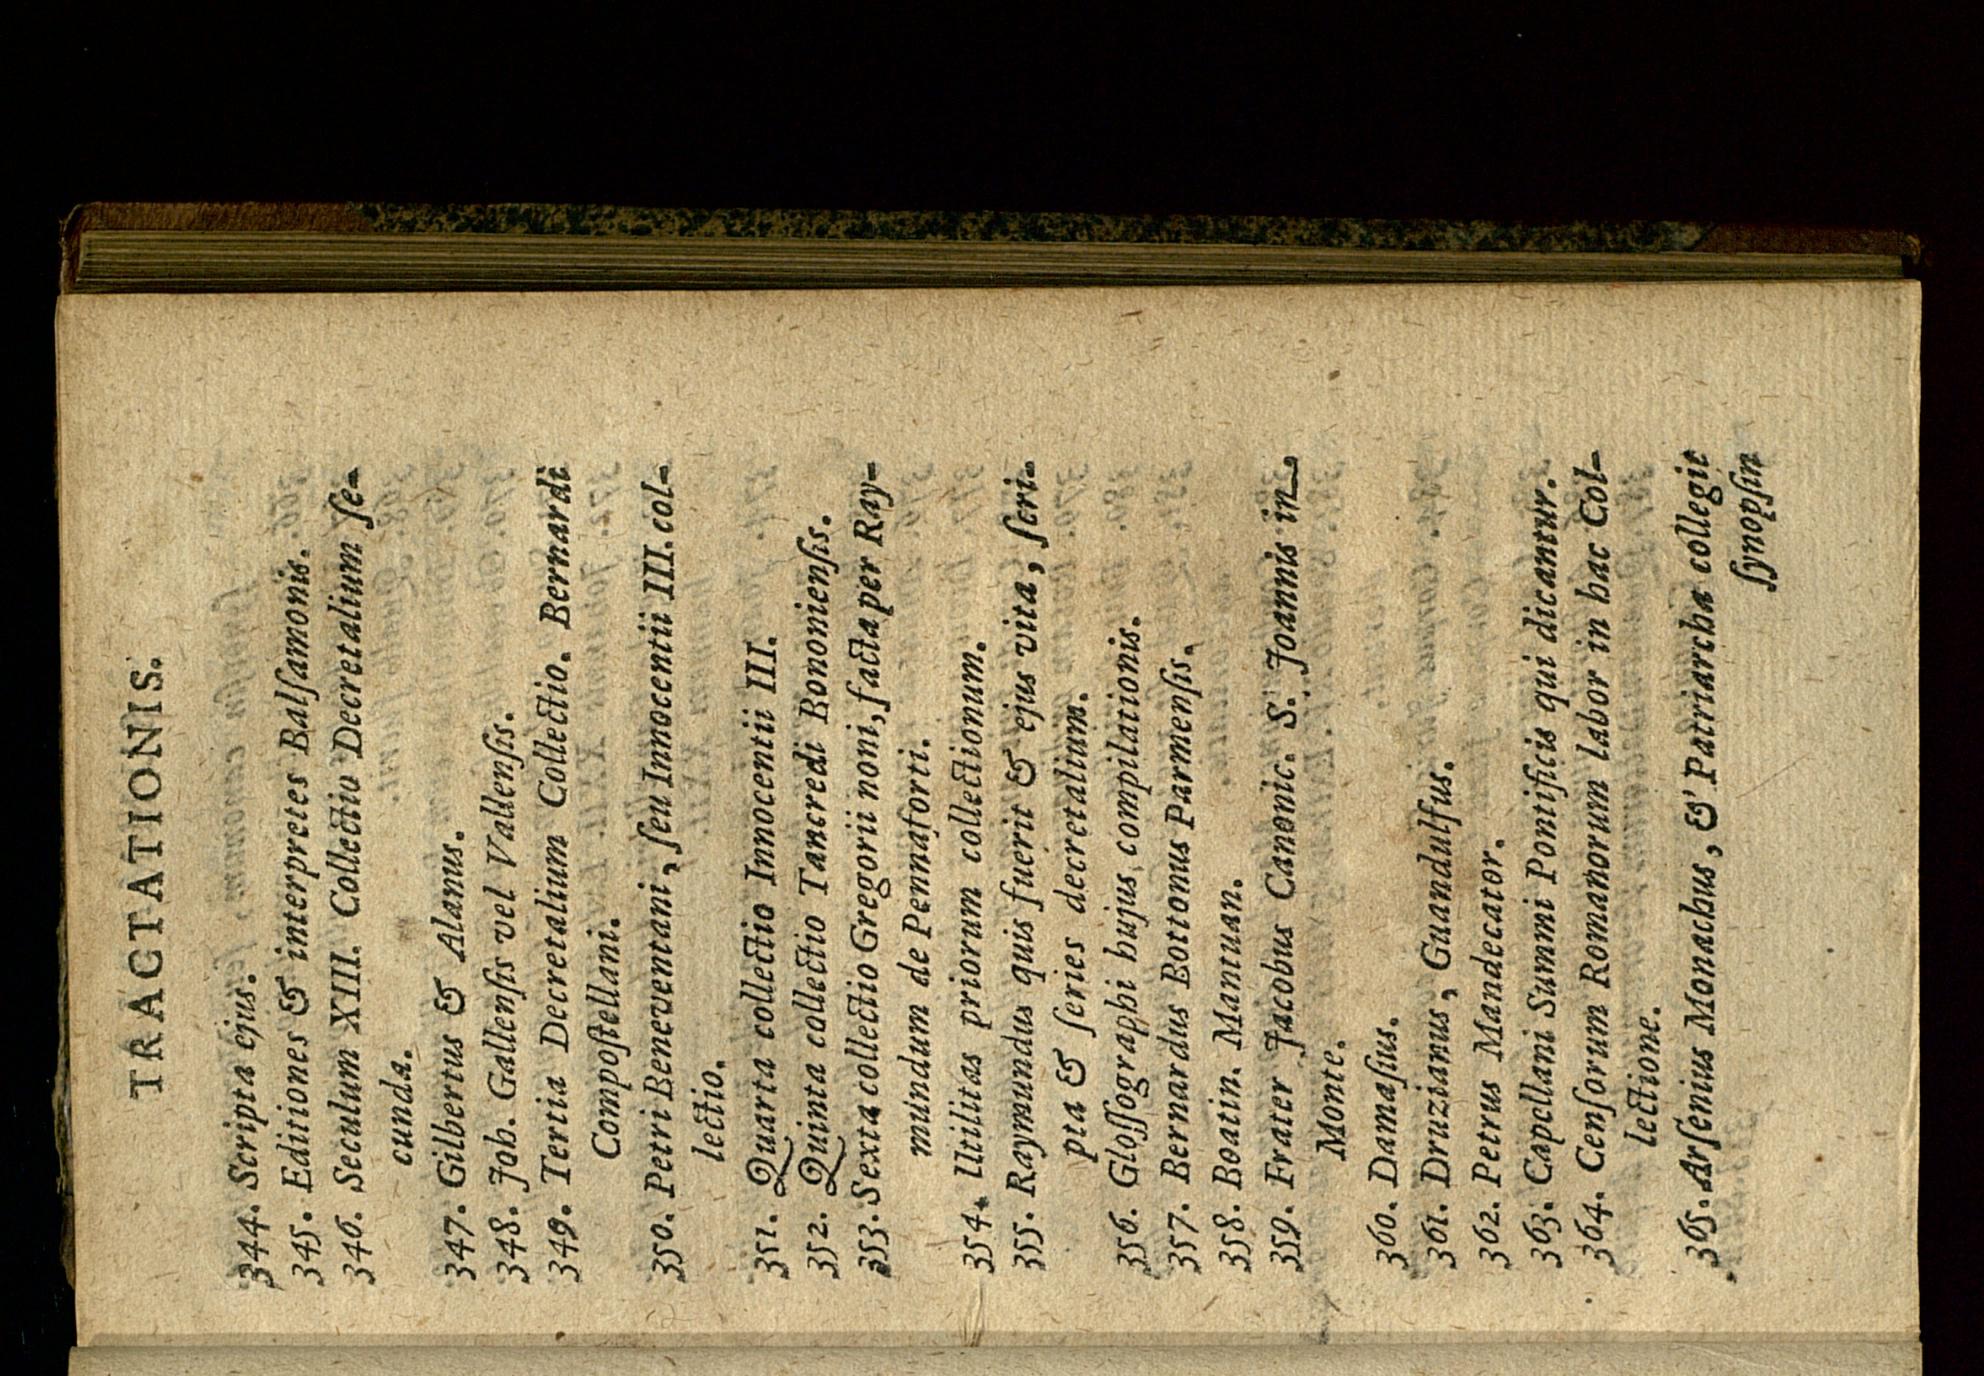 TRACTATIONIS.
344. Scripta ejus.
345. Editiones & interpretes Balſamonis.
346. Seculum XIII. Collectio Decretalium ſe-
cunda.
347. Gilbertus & Alanus.
348. Joh. Gallenſis vel Vallenſis.
349. Tertia Decretalium Collectio. Bernardi
Compoſtellani.
350. Petri Beneventani, ſeu Innocentii III. col-
lectio.
351. Quarta collectio Innocentii III.
352. Quinta collectio Tancredi Bononienſis.
353. Sexta collectio Gregorii noni, facta per Ray-
mundum de Pennaforti.
354. Utilitas priorum collectionum.
355. Raymundus quis fuerit & ejus vita, ſcri-
pta & ſeries decretalium.
356. Gloſſographi hujus compilationis.
357. Bernardus Bottonus Parmenſis.
358. Boatin. Mantuan.
359. Frater Jacobus Canonic. S. Joannis in
Monte.
360. Damaſius.
361. Druzianus, Guandulfus.
362. Petrus Mandecator.
363. Capellani Summi Pontificis qui dicantur.
364. Cenſorum Romanorum labor in hac Col-
lectione.
365. Arſenius Monachus, & Patriarcha collegit
ſynopſin